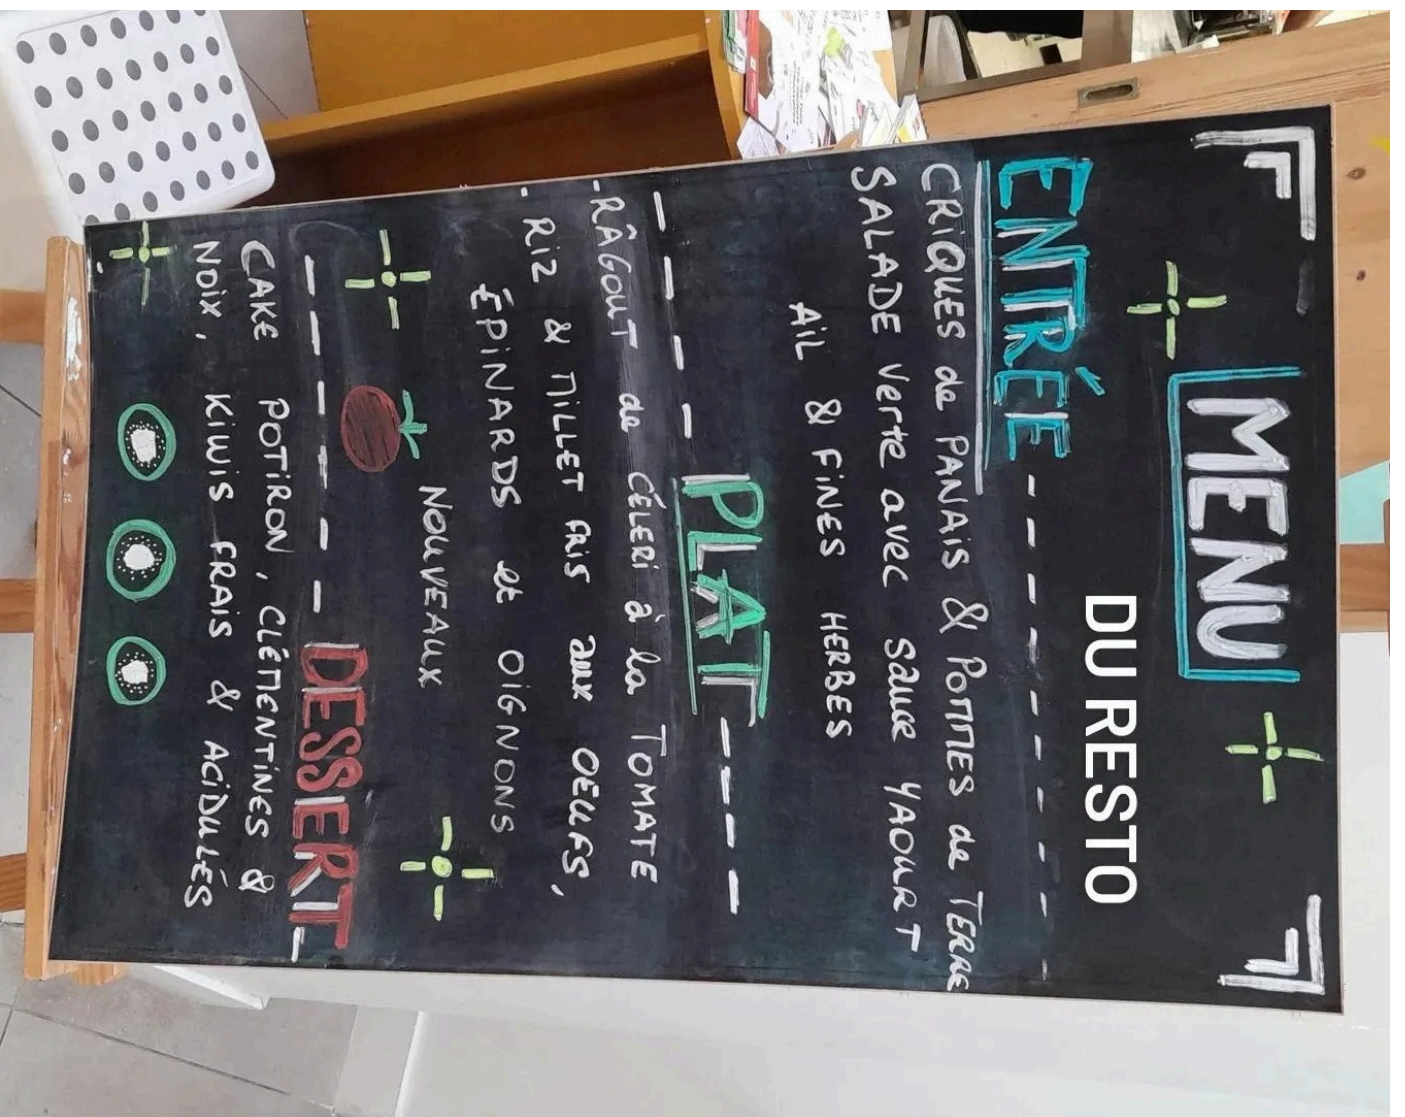 MENU
DU RESTO
ENTRÉE
CRIQUES de PANAIS & POMMES de TERRE
SALADE verte avec sauce YAOURT
AIL & FINES HERBES
PLAT
-RÂGOUT de CÉLERI à la TOMATE
- RIZ & MILLET FRIS aux OEUFS,
ÉPINARDS et OIGNONS
NOUVEAUX
DESSERT
CAKE POTIRON, CLÉMENTINES &
NOIX, KIWIS FRAIS & ACIDULÉS